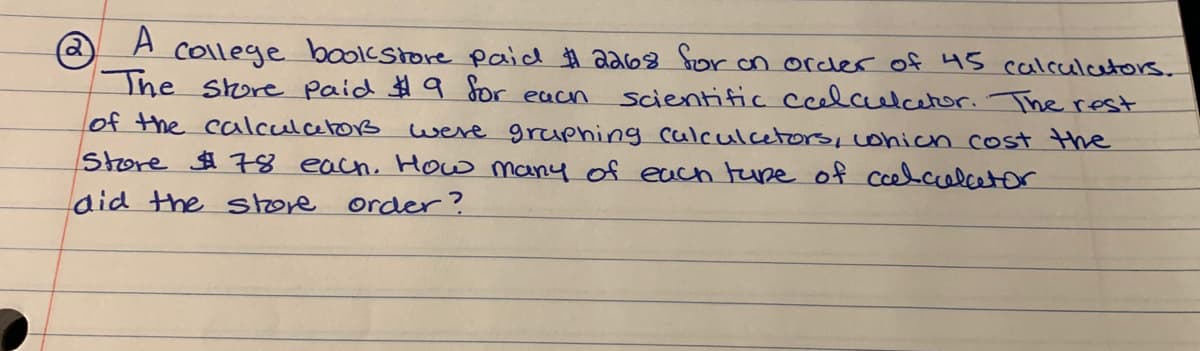 ② A college bookstore paid $ 2268 for an order of 45 calculators.
The store paid $ 9 for each scientific calculator. The rest
of the calculators were graphing calculators, which cost the
Store $ 78 each. How many of each type of calculator
did the store order?